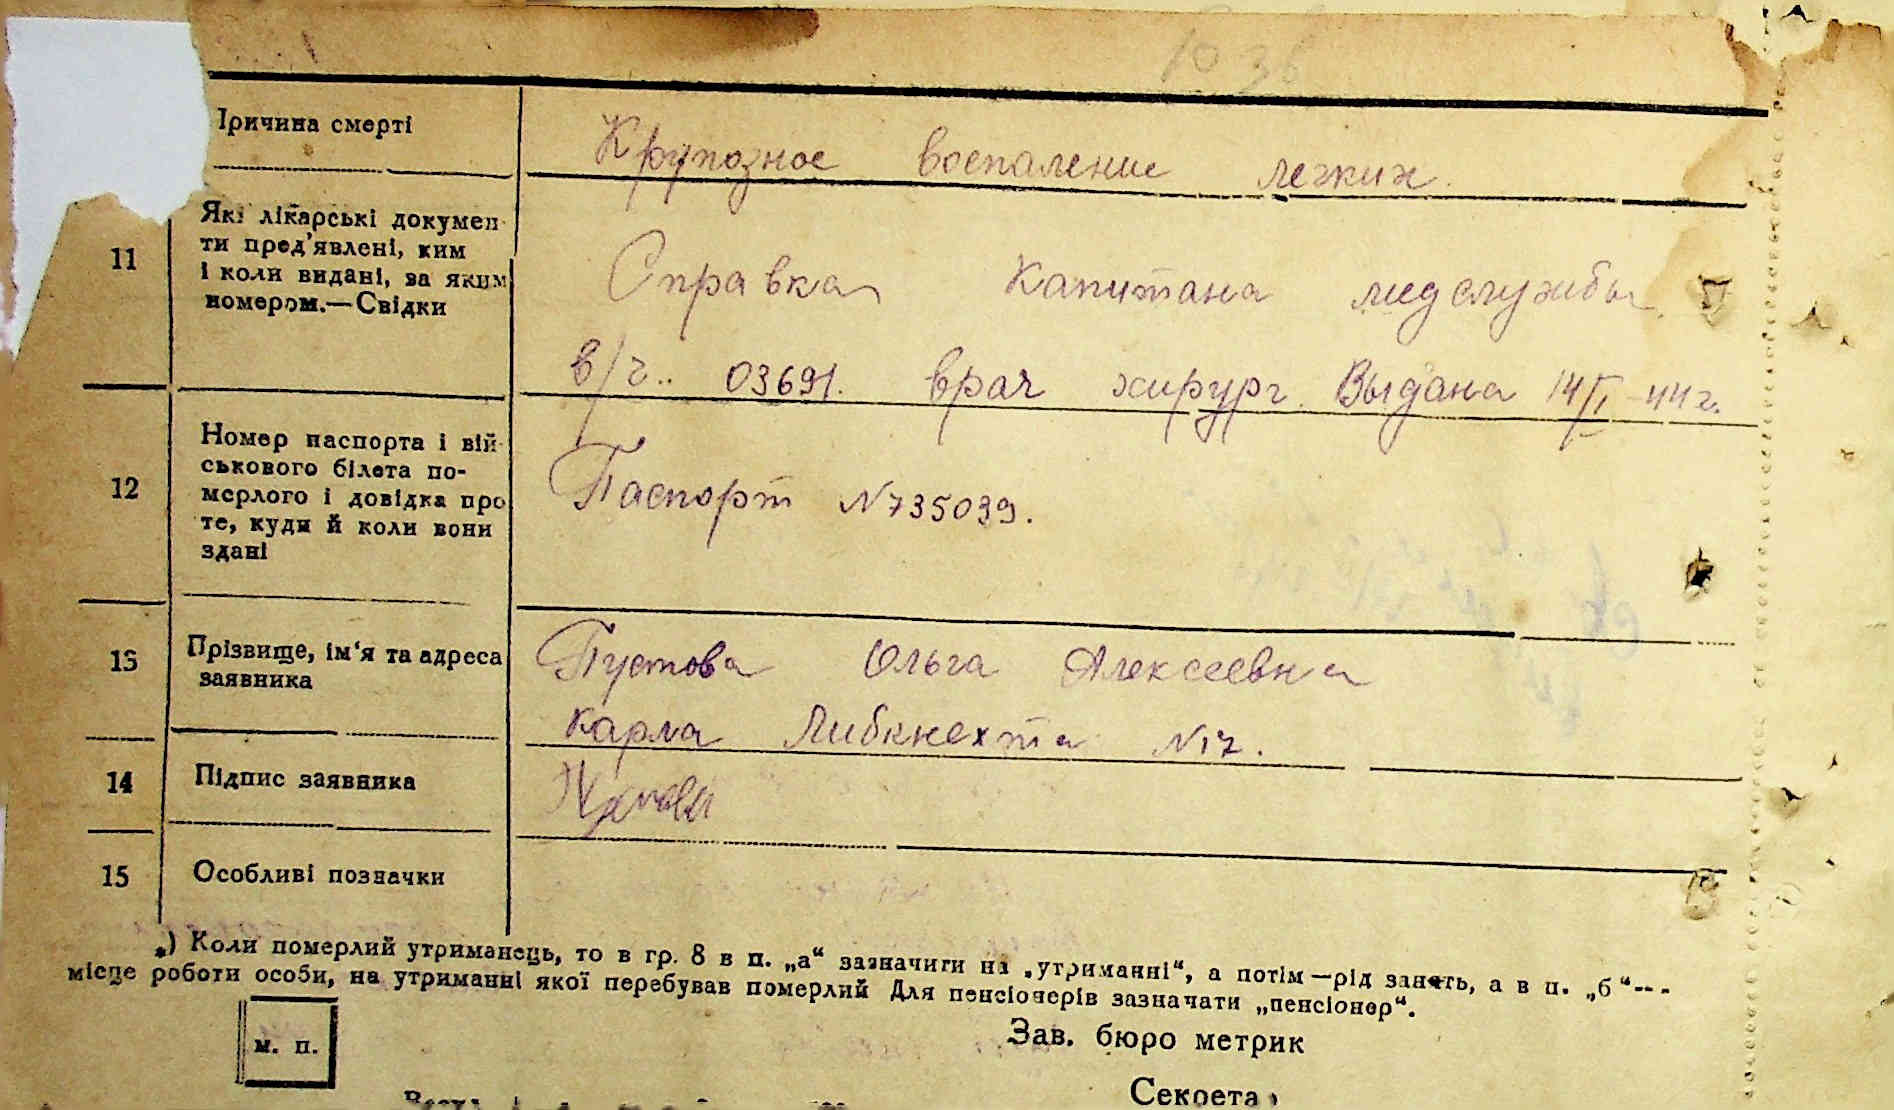 Причина смерті
Крупозное воспаление легких.
11
Які лікарські докумен-
ти пред'явлені, ким
і коли видані, за яким
номером.—Свідки
Справка Капитана медслужбы
в/ч.. 03691. врач хирург. Выдана 14/I-44г.
12
Номер паспорта і вій-
ськового білета по-
мерлого і довідка про
те, куди й коли вони
здані
Паспорт N735039.
13
Прізвище, ім'я та адреса
заявника
Пустова Ольга Алексеевна
Карла Либкнехта N17.
14
Підпис заявника
15
Особливі позначки
*) Коли померлий утриманець, то в гр. 8 в п. „а“ зазначити на „утриманні“, а потім—рід занять, а в п. „б“---
місце роботи особи, на утриманні якої перебував померлий Для пенсіонерів зазначати „пенсіонер“.
м. п.
Зав. бюро метрик
Секрета